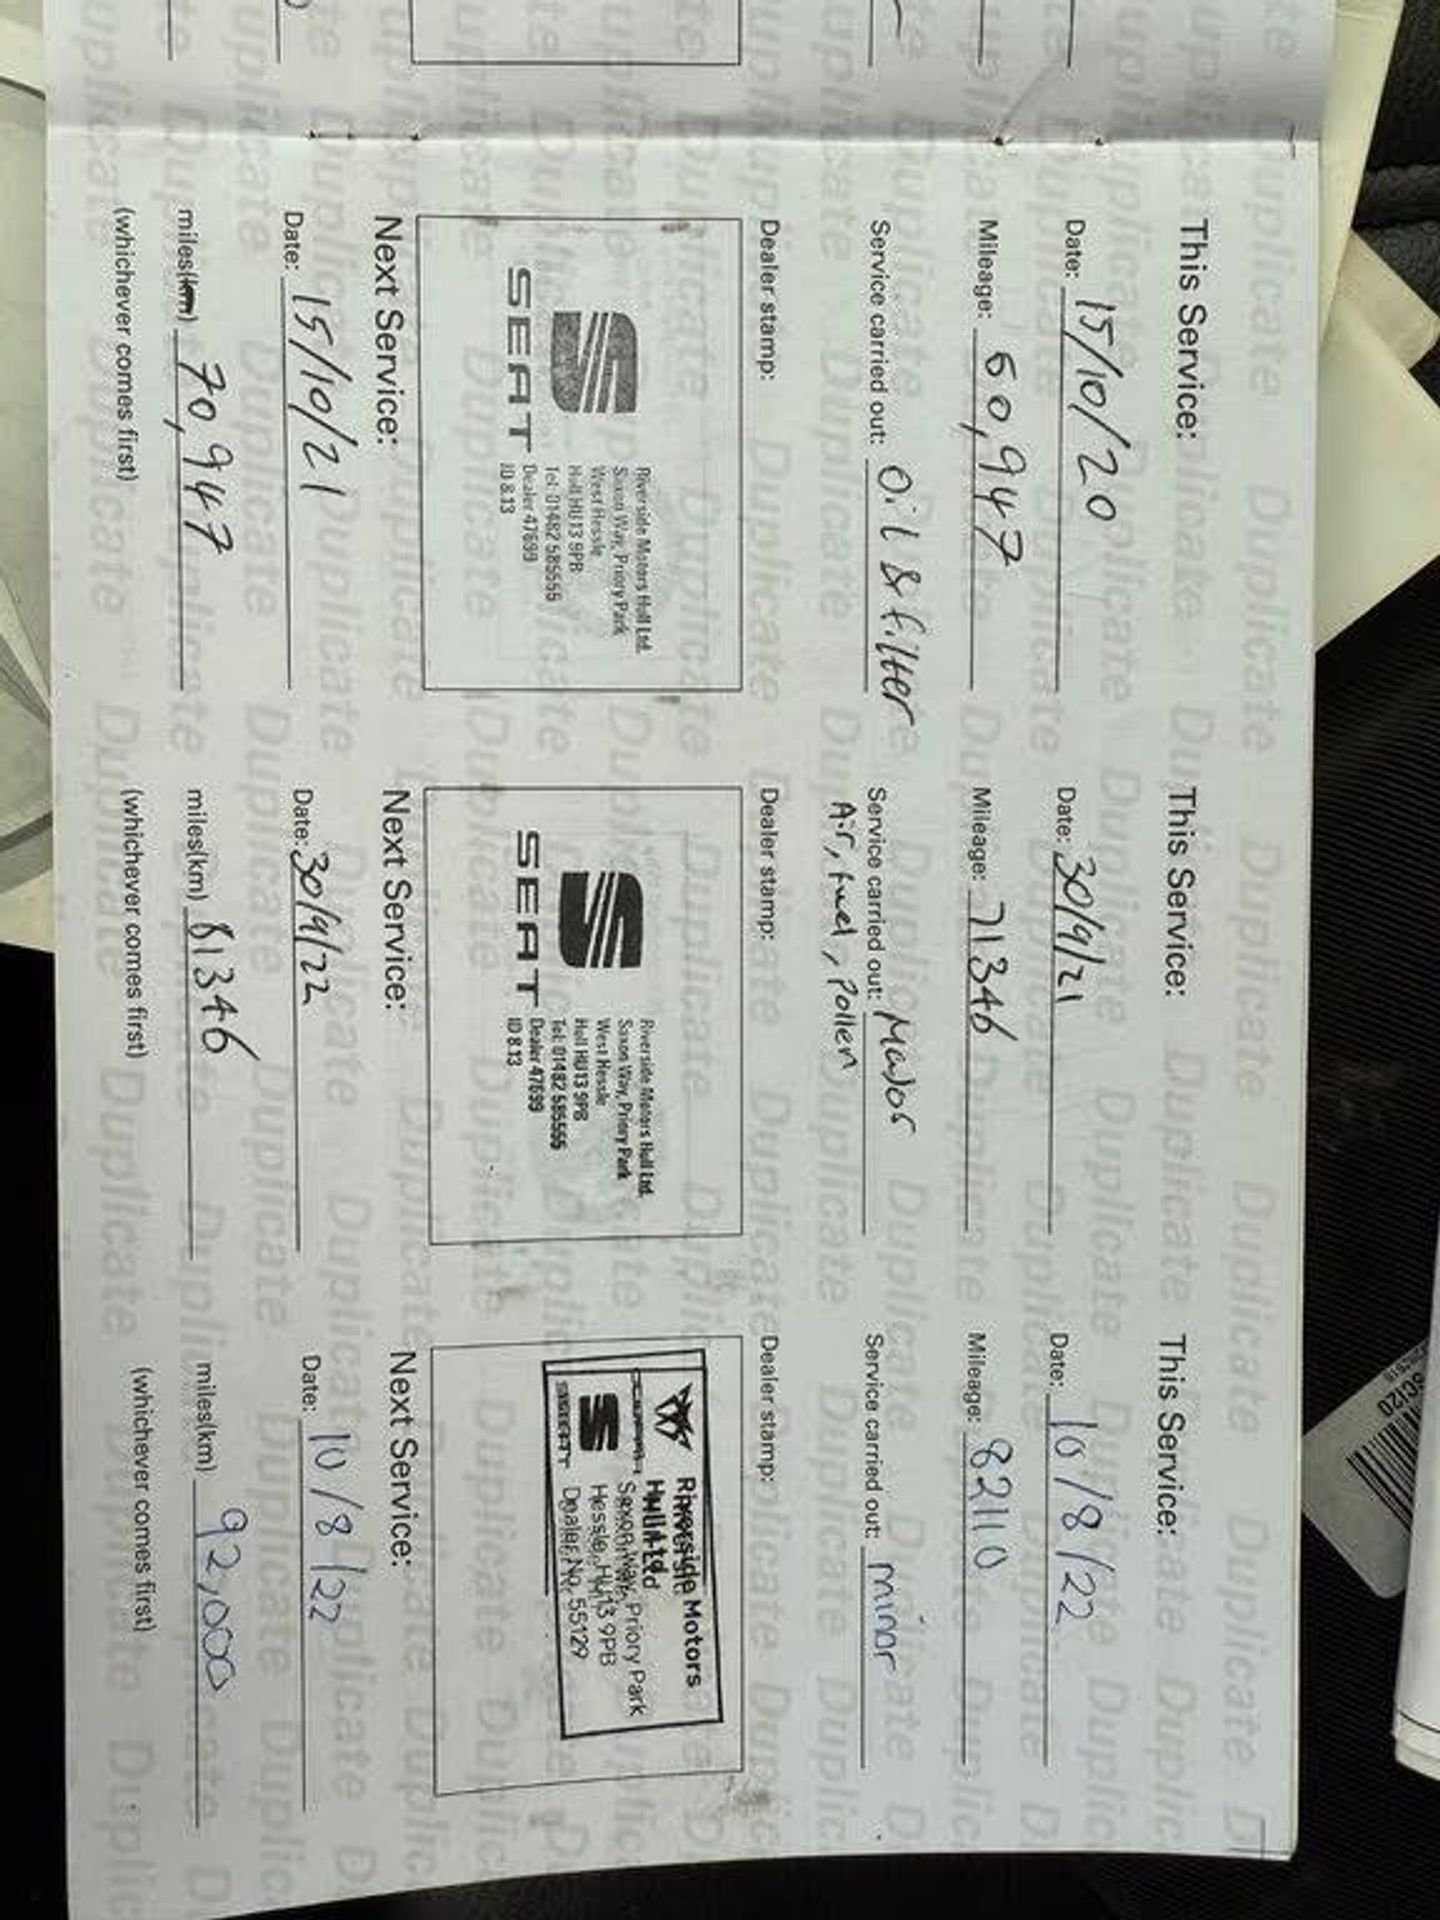 This Service:
Date: 15/10/20
Mileage: 60,947
Service carried out: Oil & filter
Dealer stamp:
SEAT
Riverside Motors Hull Ltd.
Saxon Way, Priory Park
West Hessle
Hull HU13 9PB
Tel: 01482 585555
Dealer 47699
ID 8.13
Next Service:
Date: 15/10/21
miles(km) 70,947
(whichever comes first)
This Service:
Date: 30/9/21
Mileage: 71346
Service carried out: Major
Air, fuel, Pollen
Dealer stamp:
SEAT
Riverside Motors Hull Ltd.
Saxon Way, Priory Park
West Hessle
Hull HU13 9PB
Tel: 01482 585555
Dealer 47699
ID 8.13
Next Service:
Date: 30/9/22
miles(km) 81346
(whichever comes first)
This Service:
Date: 10/8/22
Mileage: 82110
Service carried out: minor
Dealer stamp:
Riverside Motors
Hull Ltd
Saxon Way, Priory Park
Hessle, HU13 9PB
Dealer No. 55129
SEAT
Next Service:
Date: 10/8/22
miles(km) 92,000
(whichever comes first)
Duplicate